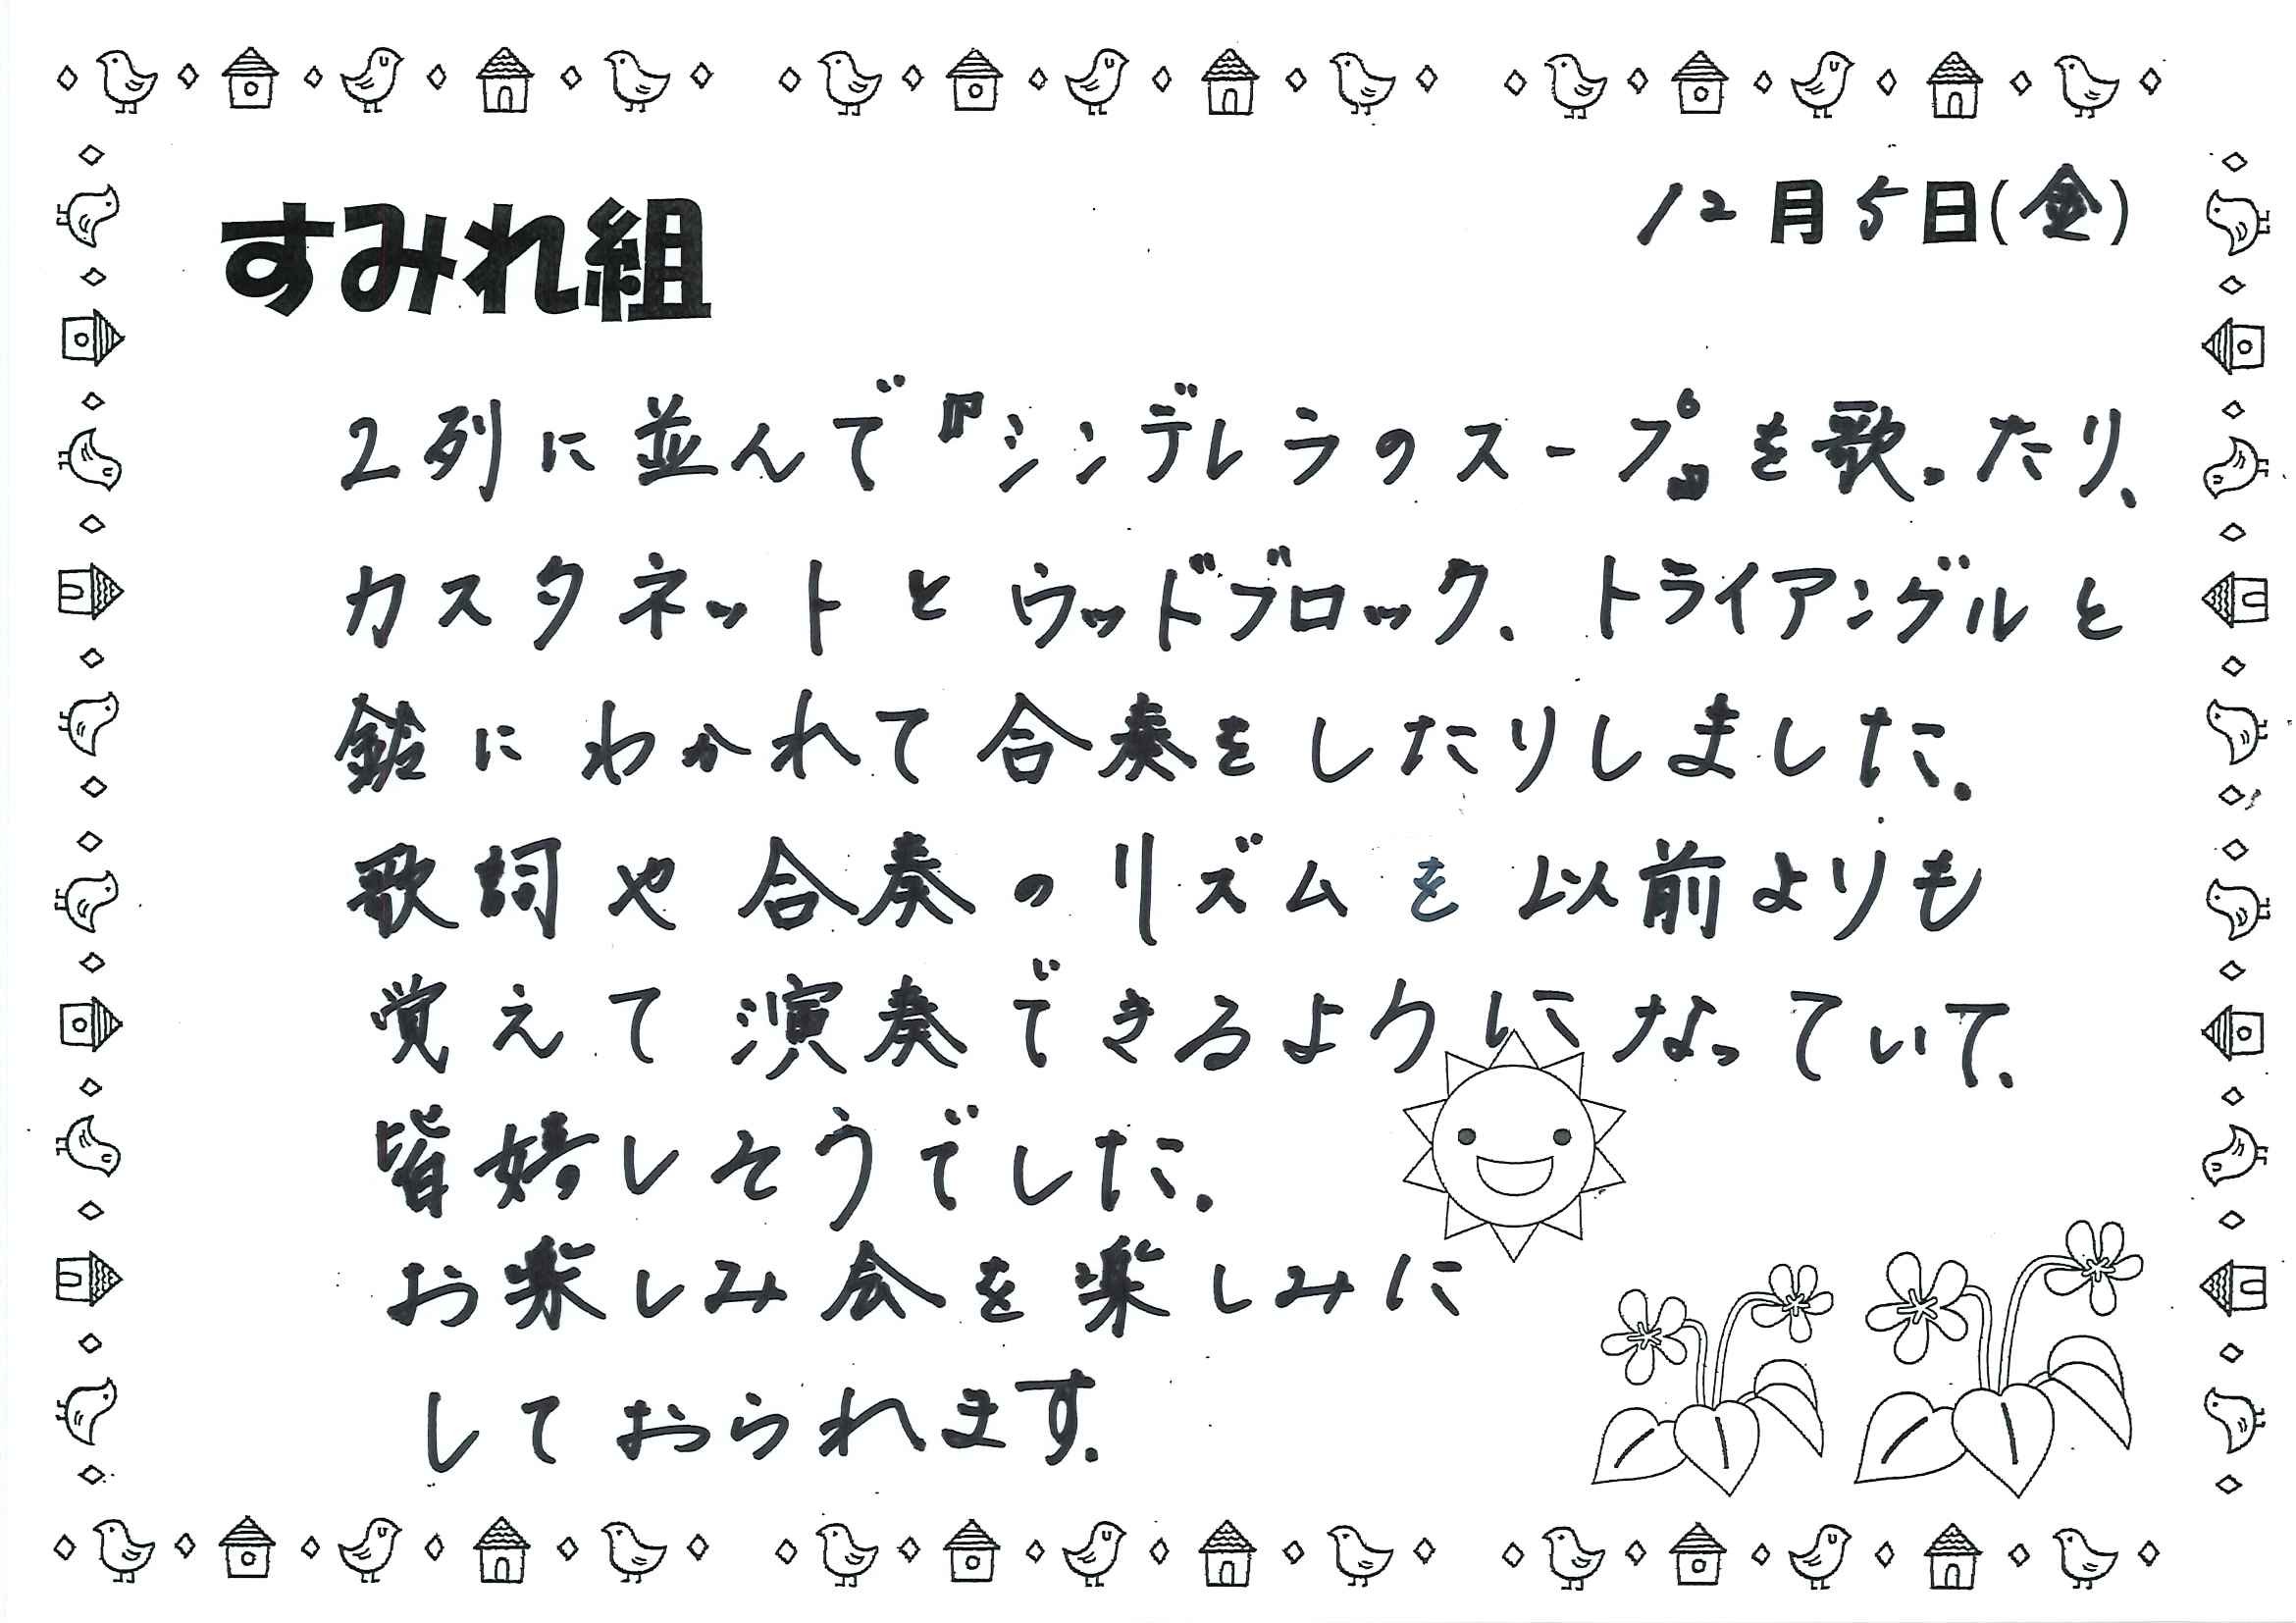 すみれ組
12月5日(金)
2列に並んで『シンデレラのスープ』を歌ったり、
カスタネットとウッドブロック、トライアングルと
鈴にわかれて合奏をしたりしました。
歌詞や合奏のリズムを以前よりも
覚えて演奏できるようになっていて、
皆嬉しそうでした。
お楽しみ会を楽しみに
しておられます。